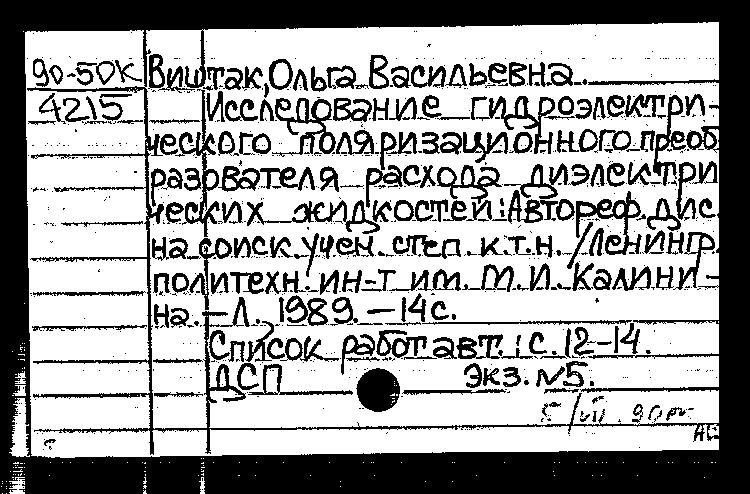 90-5DK Виштак, Ольга Васильевна.
4215 Исследование гидроэлектри-
ческого поляризационного преоб
разователя расхода диэлектри
ческих жидкостей: Автореф. дис.
на соиск. учен. степ. к.т.н. /Ленингр.
политехн. ин-т им. М. И. Калини-
на. – Л. 1989. – 14 с.
Список работ авт.: с. 12-14.
ДСП Экз. №5.
5/VII. 90